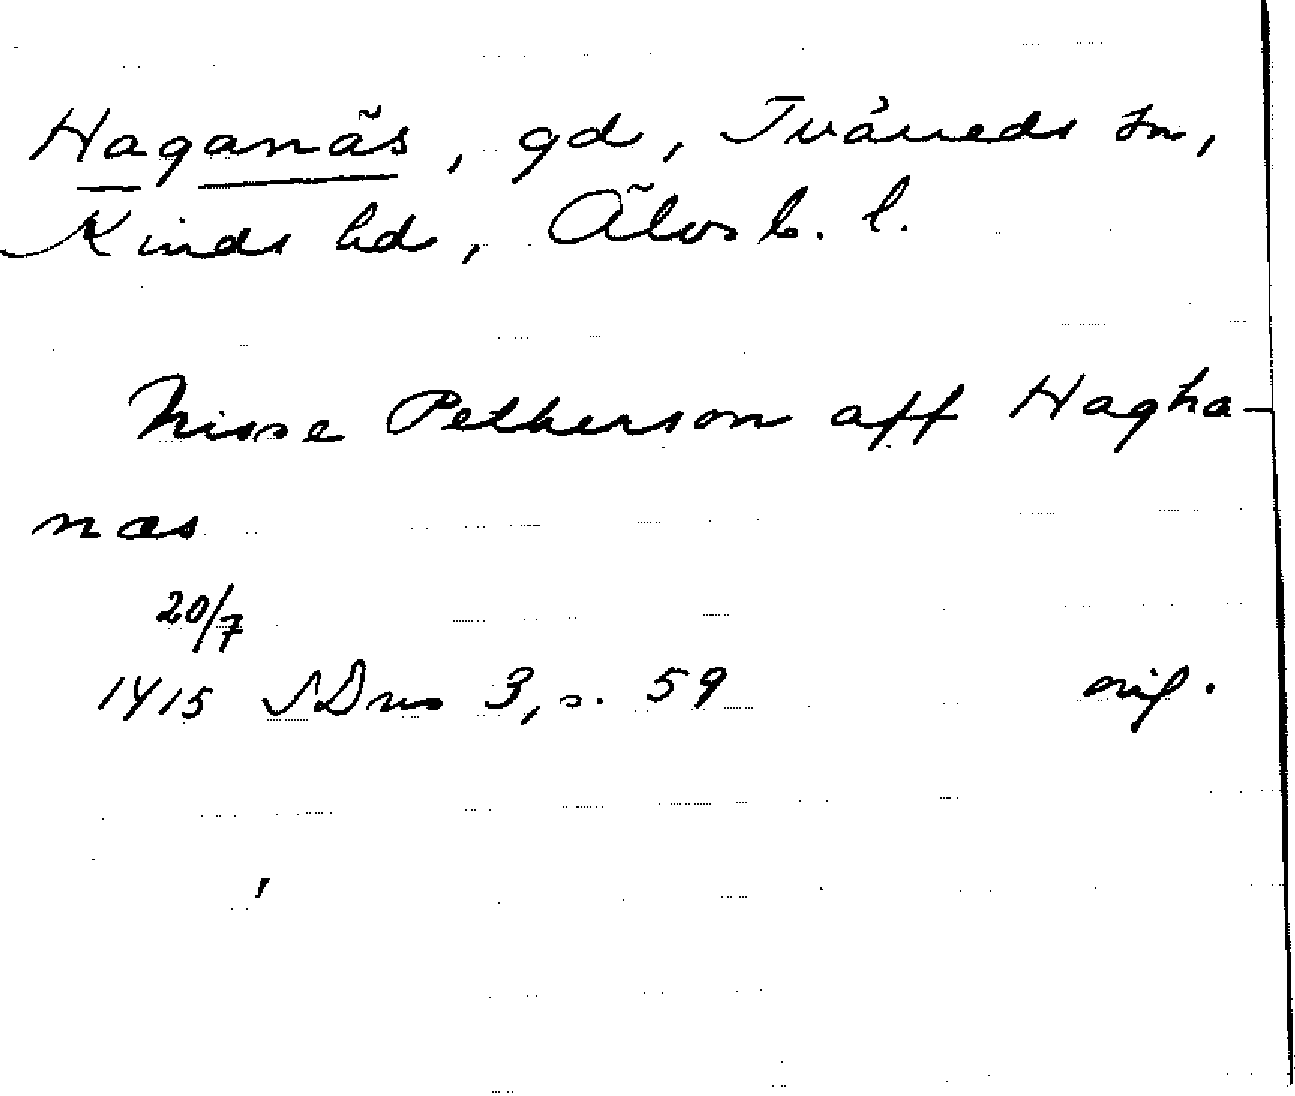 Haganäs, gd, Tvåreds sn,
Kinds hd, Älvsb. l.
Nisse Petherson aff Hagha-
næs
20/7
1415 SDns 3, s. 59 orig.